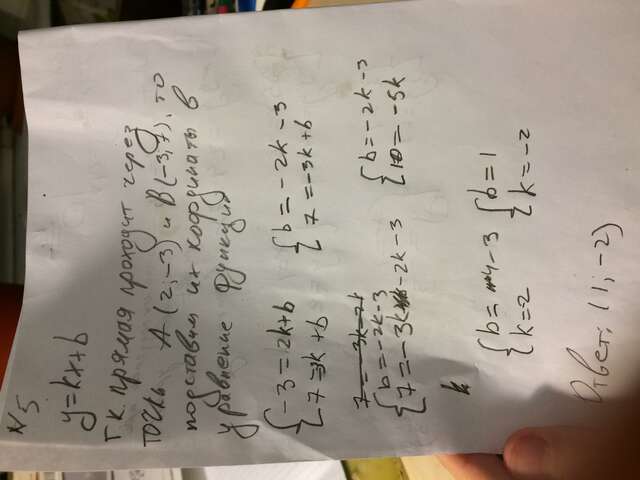 №5
y=kx+b
Т.к. прямая проходит через
точки A(2;-3) и B(-3;7), то
подставим их координаты в
уравнение функции
{-3=2k+b {b=-2k-3
{7=-3k+b {7=-3k+b
7=-3k-2k
{b=-2k-3 {b=-2k-3
{7=-3k-2k-3 {10=-5k
k
{b=4-3 {b=1
{k=2 {k=-2
Ответ: (1;-2)